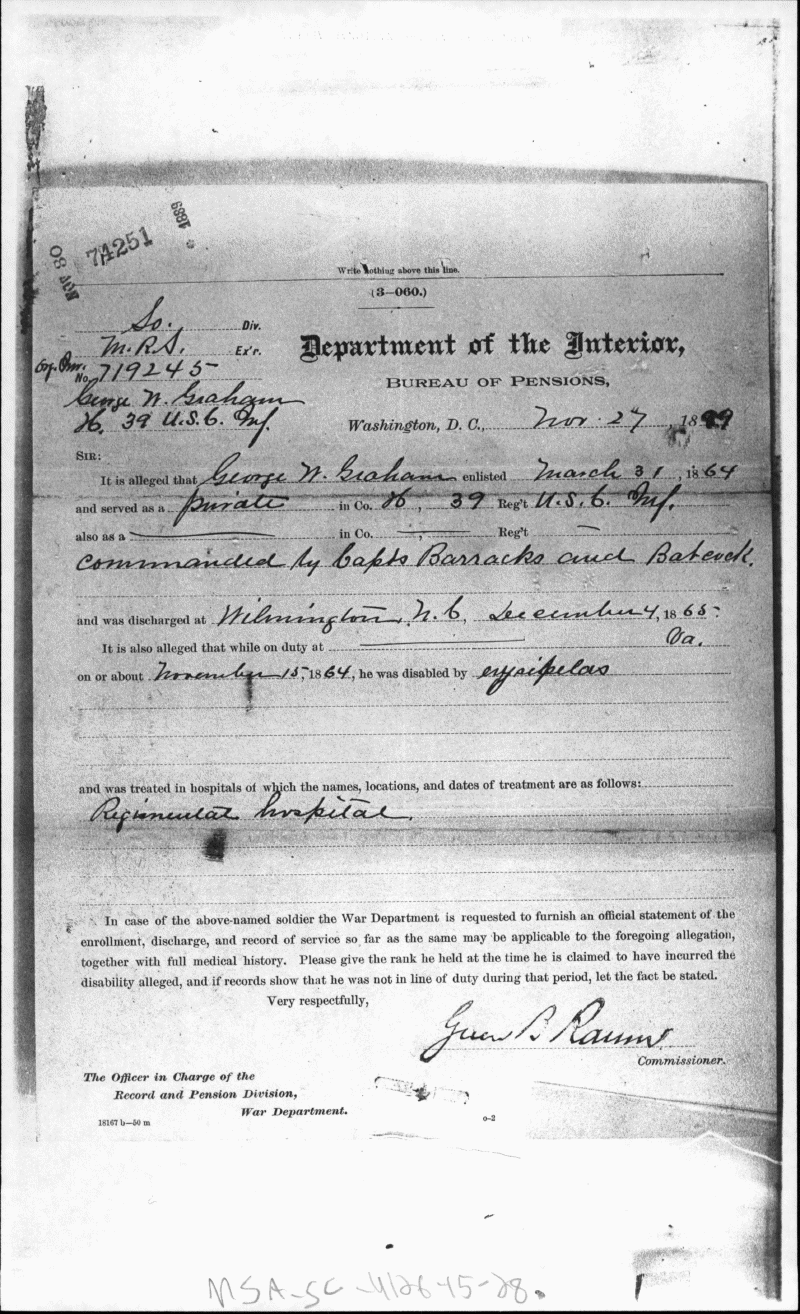 NOV 30
74251
1889
Write nothing above this line.
(3—060.)
So. Div.
M.R.S. Ex'r.
No. 719245
George W. Graham
H. 39 U.S.C. Inf.
Department of the Interior,
BUREAU OF PENSIONS,
Washington, D. C., Nov. 27, 1889
SIR:
It is alleged that George W. Graham enlisted March 31, 1864
and served as a private in Co. H, 39 Reg't U.S.C. Inf.
also as a — in Co. — , — Reg't —
commanded by Capts Barracks and Babcock.
and was discharged at Wilmington, N.C, December 4, 1865.
It is also alleged that while on duty at — Va.
on or about November 15, 1864, he was disabled by erysipelas
and was treated in hospitals of which the names, locations, and dates of treatment are as follows:
Regimental hospital.
In case of the above-named soldier the War Department is requested to furnish an official statement of the
enrollment, discharge, and record of service so far as the same may be applicable to the foregoing allegation,
together with full medical history. Please give the rank he held at the time he is claimed to have incurred the
disability alleged, and if records show that he was not in line of duty during that period, let the fact be stated.
Very respectfully,
Green B Raum
Commissioner.
The Officer in Charge of the
Record and Pension Division,
War Department.
18167 b—50 m
o-2
MSA-SC-4126-15-28.